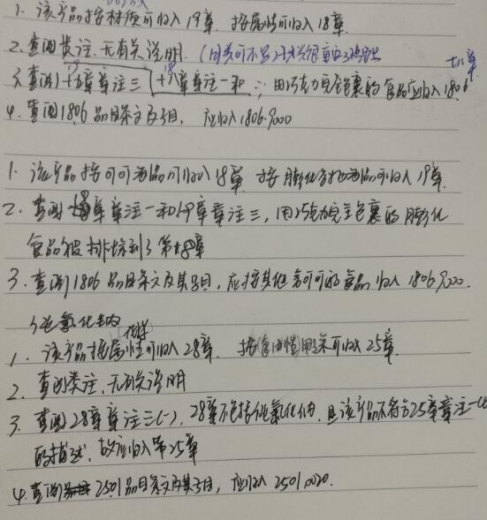 1. 该产品按材质可归入19章, 按属性可归入18章.
2. 查阅类注, 无有关说明.
3. 查阅十九章章注三 十八章章注一和二: 用巧克力完全包裹的食品应归入1806
十八章
4. 查阅1806品目条文及子目, 应归入1806.9000
1. 该产品按可可制品可归入18章, 按膨化食品制品可归入19章.
2. 查阅18章章注一和19章章注三, 用巧克力完全包裹的膨化
食品被排除到了第18章
3. 查阅1806品目条文及其子目, 应按其他含可可的食品归入1806.9000.
纯氯化钠
1. 该产品按属性可归入28章, 按食用性用来可归入25章.
2. 查阅类注, 无相关说明
3. 查阅28章章注三(一), 28章不包括纯氯化钠, 且该产品不符合25章章注一
的描述, 故应归入第25章
4. 查阅2501品目条文及其子目, 应归入25010020.